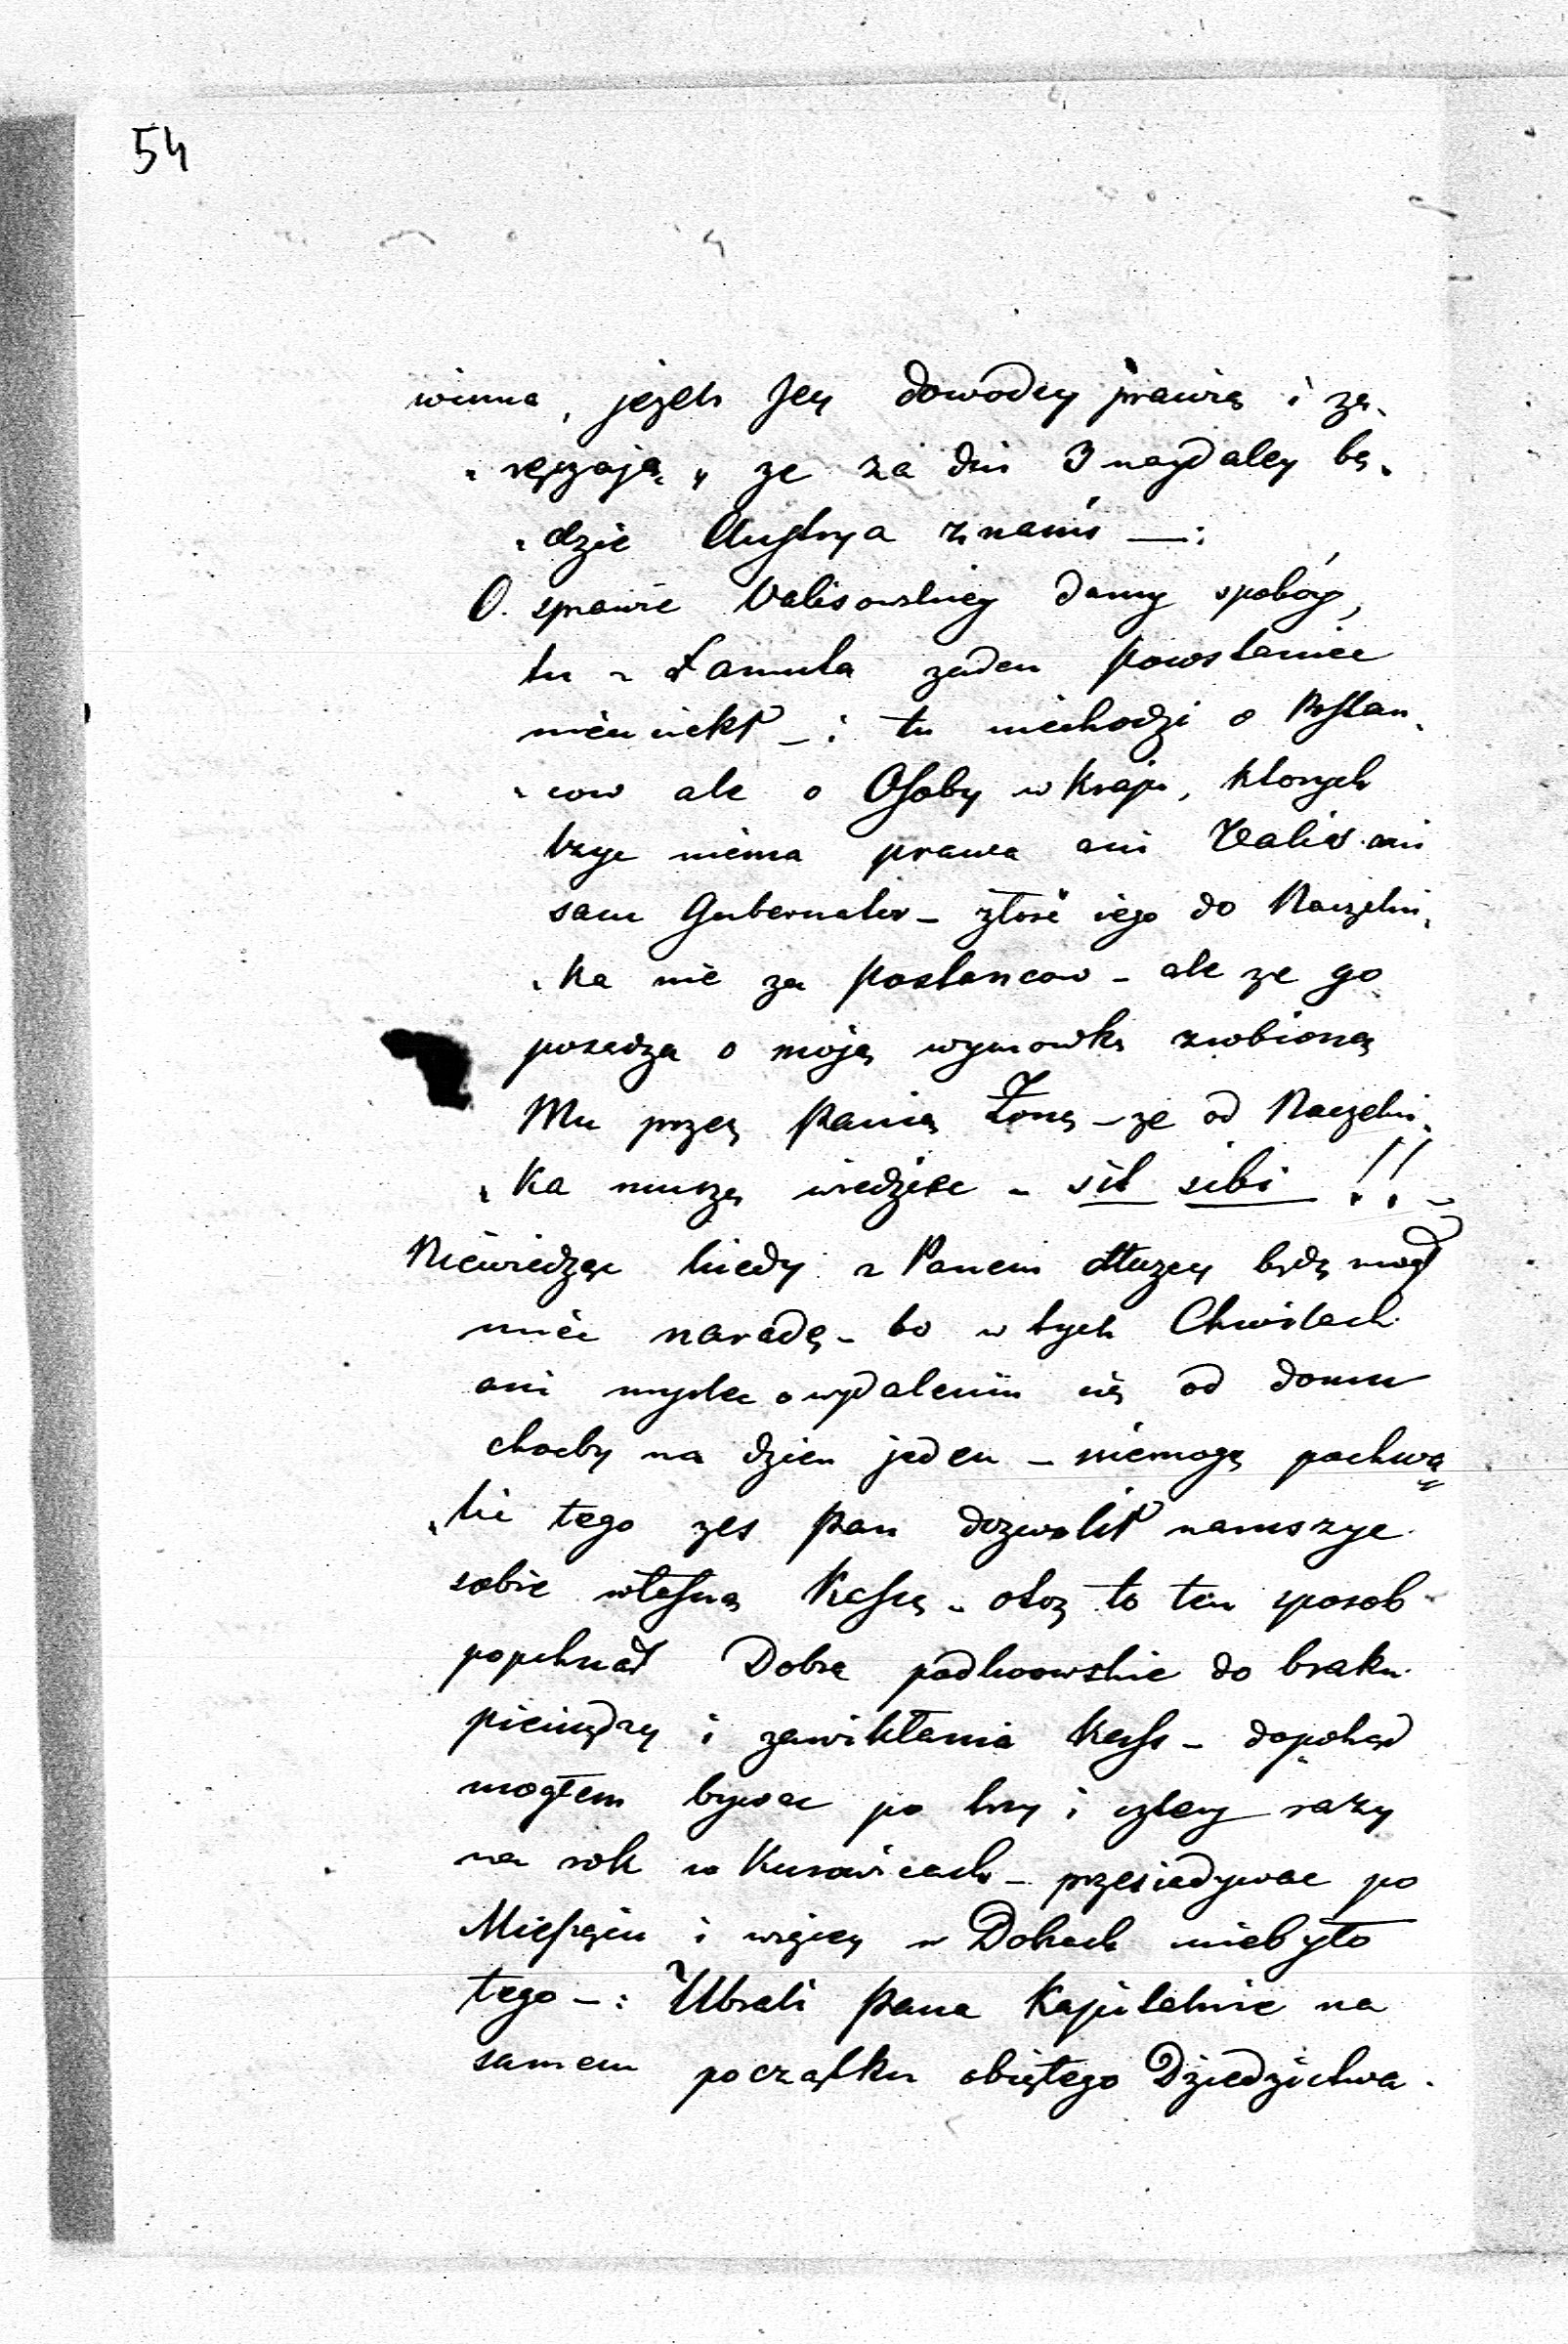 54
winna, jezeli Jey dowodcy prawią i za„
„ręczają, ze za dni 3 naydaley bę„
„dzie Austrya z nami —:
O sprawie Valisowskiey damy spokóy,
tu z Łamuła zaden powstaniec
nieuciekł —: tu niechodzi o Postan„
„cow ale o Osoby w Kraju, ktorych
tzyc niema prawa ani Valis ani
sam Gubernator — złosć iego do Naczelni„
„ka nie za postancow — ale ze go
posadza o moją wymowkę zrobioną
Mu przez Panią Zonę — ze od Naczelni„
„ka muszę wiedziec — sit sibi !! —
Niewiedząc kiedy z Panem dłuzey będę mogł
miec naradę — bo w tych Chwilach
ani myslec o wydaleniu się od domu
chocby na dzien jeden — niemogę pochwa„
„lic tego zes Pan dozwolił naruszyc
sobie własną Kassę — otoz to ten sposob
popchnał Dobra podhorowskie do braku
pieniędzy i zawikłania Kassy — dopokąd
mogłem bywac po trzy i cztery razy
na rok w Kurowicach — przesiadywac po
Miesiącu i więcey w Dobrach niebyło
tego —: Ubrali Pana Kapitalnie na
samem początku obiętego Dziedzictwa.